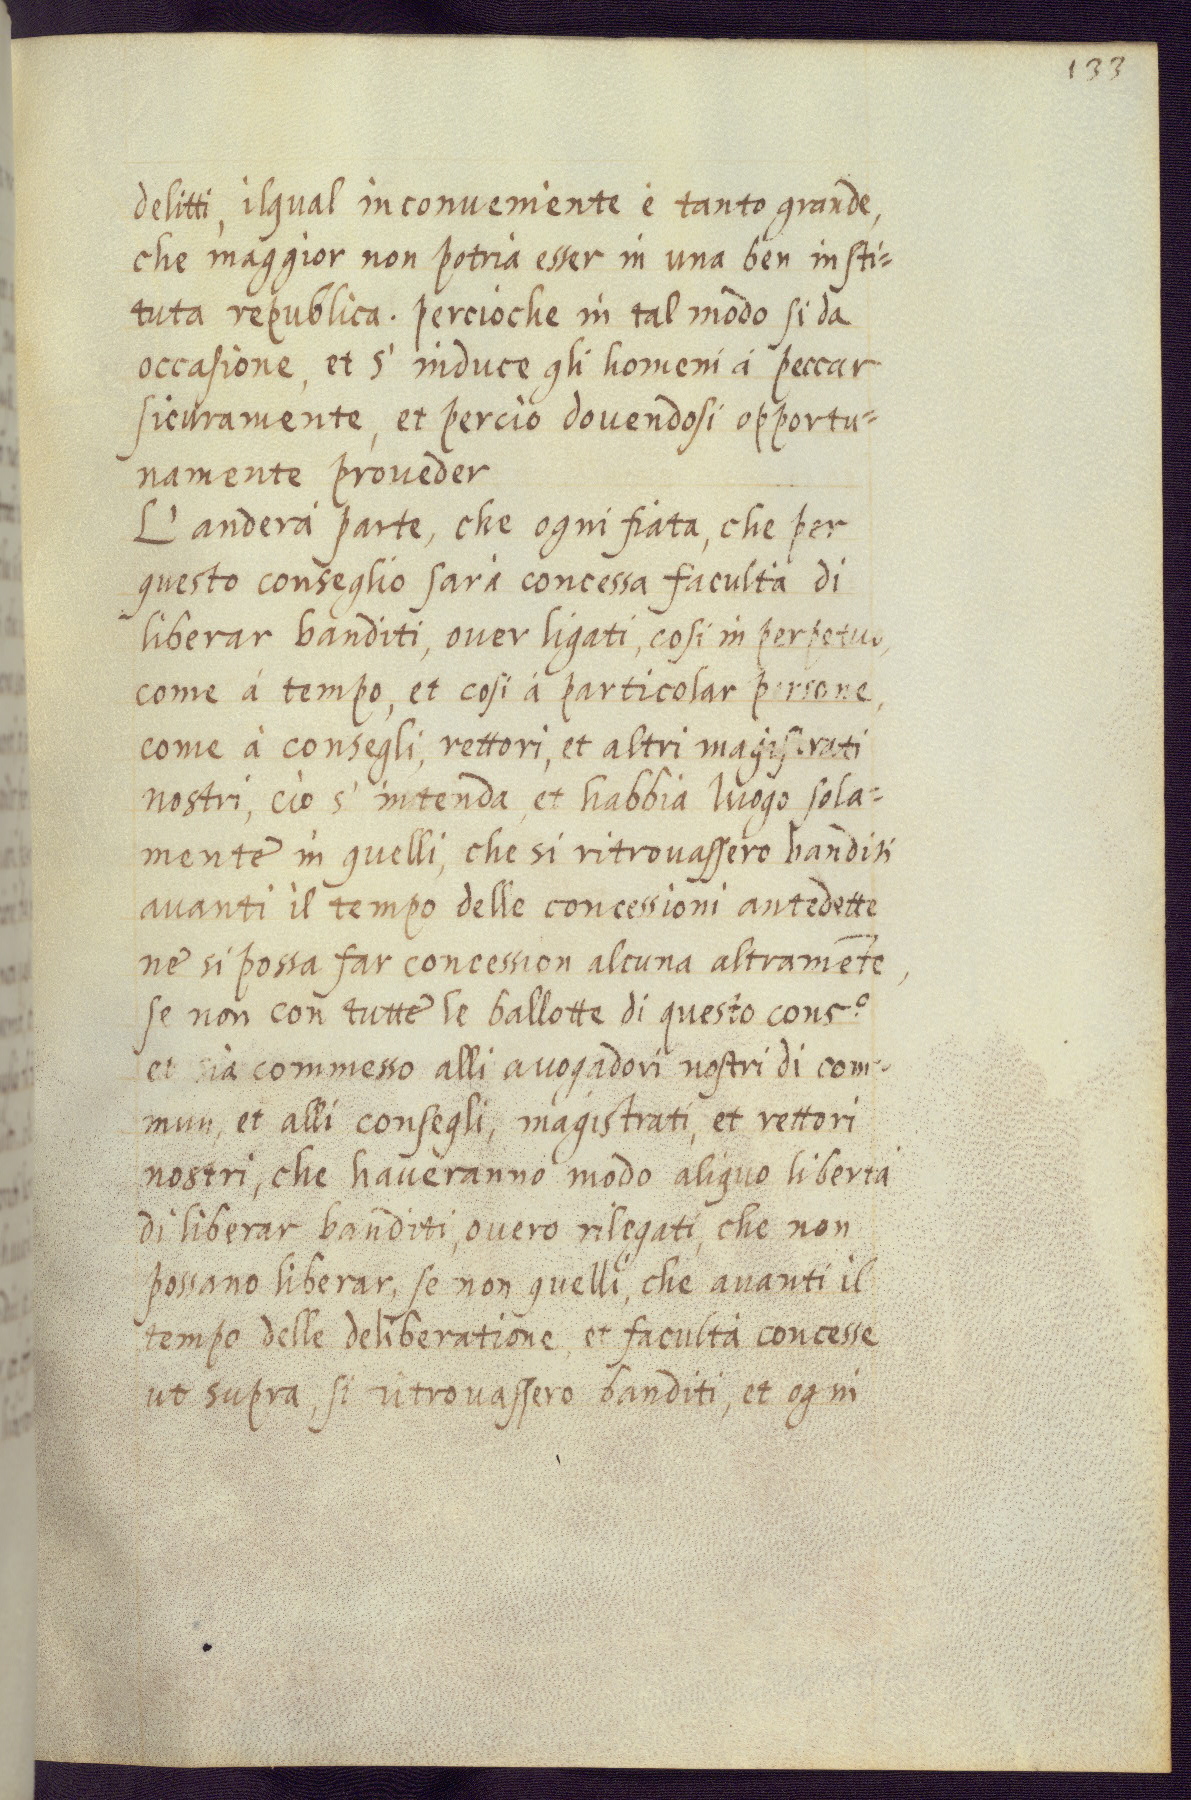 133
delitti, ilqual inconueniente è tanto grande,
che maggior non potria esser in una ben insti-
tuta republica. percioche in tal modo si da
occasione, et s' induce gli homeni à peccar
sicuramente, et percio dovendosi opportu-
namente proueder
L' anderà parte, che ogni fiata, che per
questo conseglio sarà concessa facultà di
liberar banditi, ouer ligati, cosi in perpetuo,
come à tempo, et cosi à particolar persone,
come à consegli, rettori, et altri magistrati
nostri, cio s' intenda, et habbia luogo sola-
mente in quelli, che si ritrouassero banditi
auanti il tempo delle concessioni antedette
ne si possa far concession alcuna altramẽte,
se non con tutte le ballotte di questo cons.º
et sia commesso alli auogadori nostri di com-
mun, et alli consegli, magistrati, et rettori
nostri, che haueranno modo aliquo libertà
di liberar banditi, ouero rilegati, che non
possano liberar, se non quelli, che auanti il
tempo delle deliberatione, et facultà concesse
ut supra, si ritrouassero banditi, et ogni